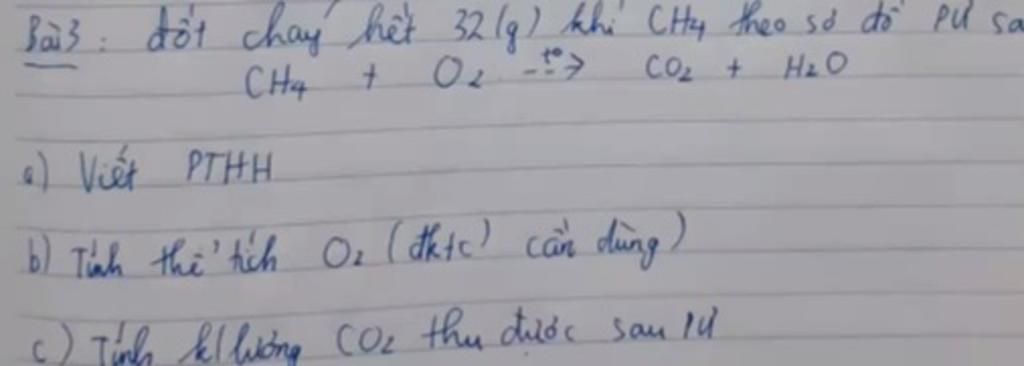 Bài 3: đốt cháy hết 32(g) khí CH4 theo sơ đồ PƯ sa
CH4 + O2 --t°--> CO2 + H2O
a) Viết PTHH
b) Tính thể tích O2 (đktc) cần dùng)
c) Tính k/lượng CO2 thu được sau PƯ